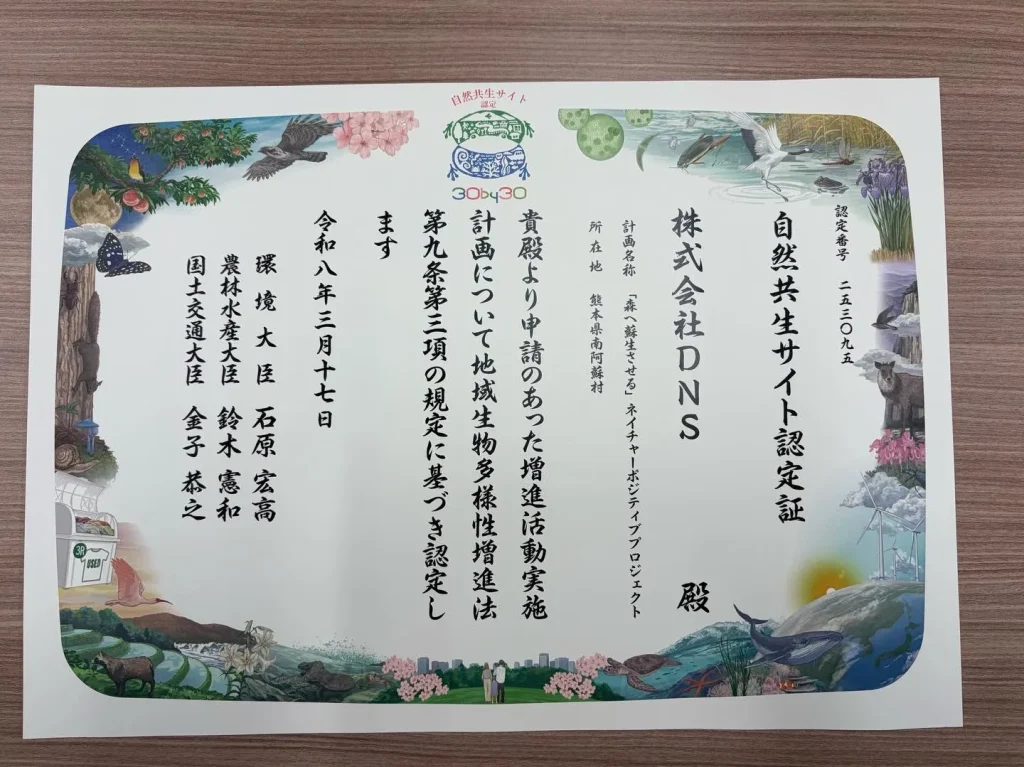 自然共生サイト
認定
30by30
認定番号 二五三〇九五
自然共生サイト認定証
株式会社DNS 殿
計画名称 「森へ蘇生させる」ネイチャーポジティブプロジェクト
所在地 熊本県南阿蘇村
貴殿より申請のあった増進活動実施
計画について地域生物多様性増進法
第九条第三項の規定に基づき認定し
ます
令和八年三月十七日
環境大臣 石原宏高
農林水産大臣 鈴木憲和
国土交通大臣 金子恭之
3R
USED